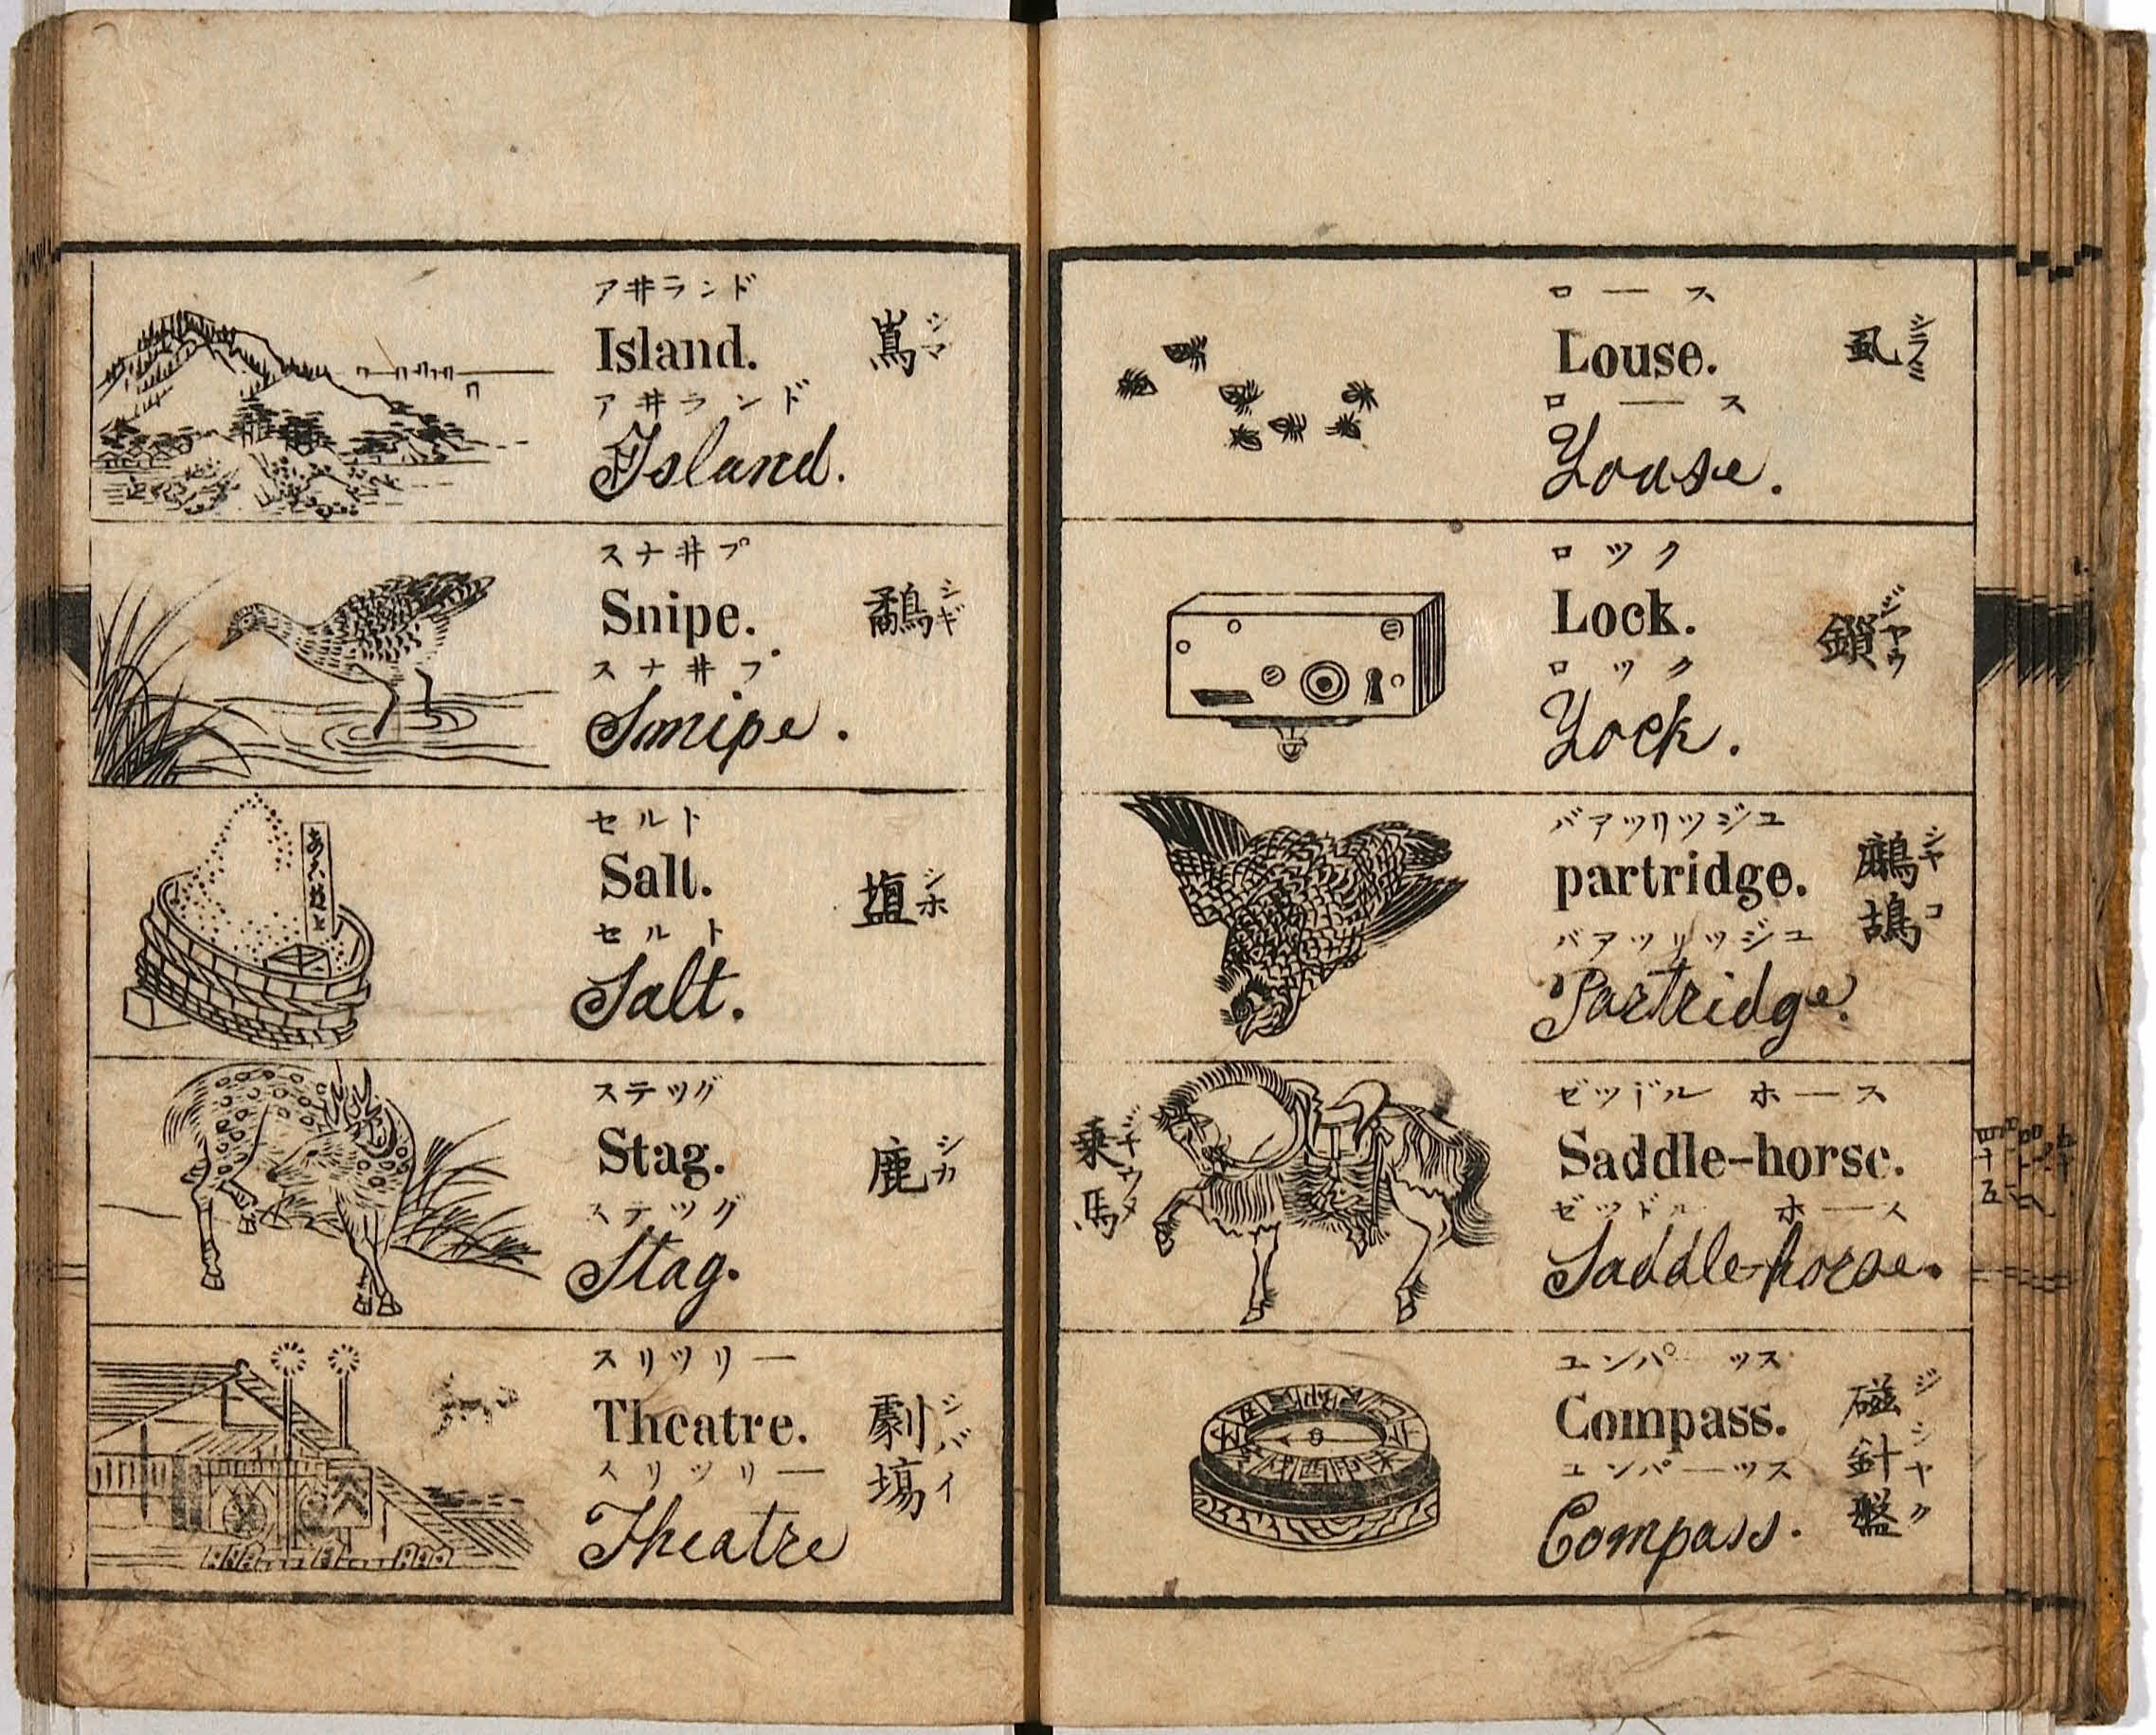 ロース
Louse.
ロース
Louse.
虱
シラミ
ロック
Lock.
ロック
Lock.
鎖
ジヤウ
バアツリツジユ
partridge.
バアツリツジユ
Partridge.
鷓鴣
シヤコ
ゼツドル ホース
Saddle-horse.
ゼツドル ホース
Saddle-horse.
乗馬
コンパーツス
Compass.
コンパーツス
Compass.
磁針盤
ジシヤク
アヰランド
Island.
アヰランド
Island.
嶌
シマ
スナヰプ
Snipe.
スナヰプ
Snipe.
鷸
シギ
セルト
Salt.
セルト
Salt.
塩
シホ
ステツグ
Stag.
ステツグ
Stag.
鹿
シカ
スリツリー
Theatre.
スリツリー
Theatre
劇場
シバイ
四十五